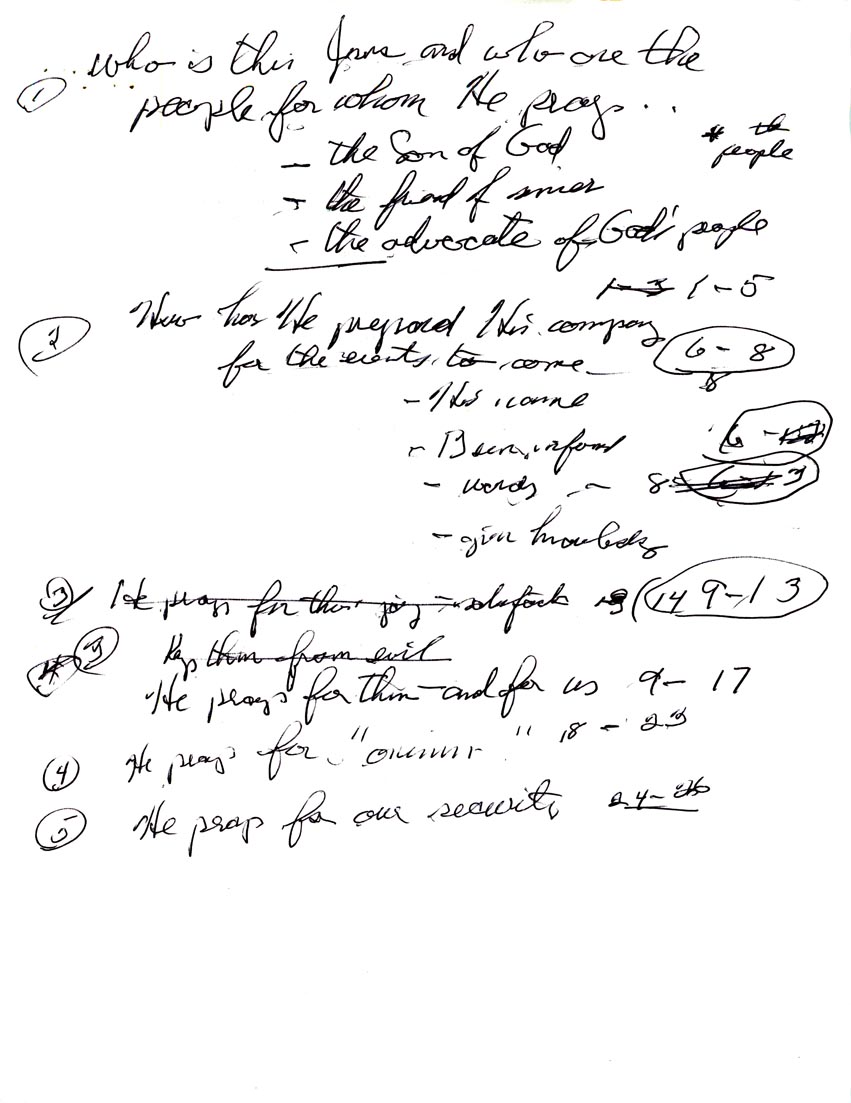 who is this Jesus and who are the
① people for whom He prays . .
* the people
- the Son of God
- the friend of sinner
- the advocate of God's people
1-3 1-5
② How has He prepared His company
for the events to come 6-8
8
- His name
- Been inform 6 -
- words - 8
- given knowledge
③ He prays for their joy - 13 (14 9-13
4 ③ Keep them from evil
He prays for them - and for us 9-17
④ He prays for "oneness" 18-23
⑤ He prays for our security 24-26